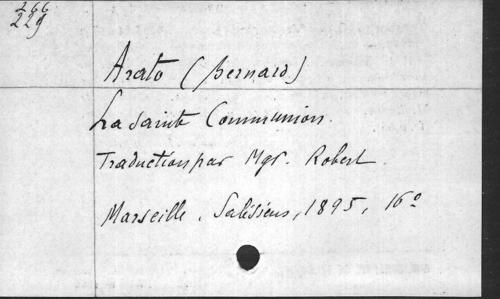 266
229
Arato (Bernard)
La Sainte Communion.
Traduction par Mgr. Robert.
Marseille, Salésiens, 1895, 16º